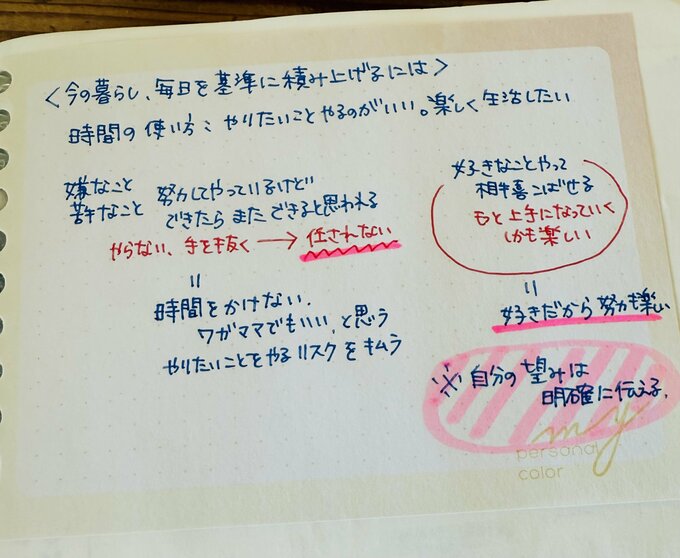 <今の暮らし、毎日を基準に積み上げるには>
時間の使い方：やりたいことやるのがいい。楽しく生活したい
嫌なこと
苦手なこと
努力してやっているけど
できたらまたできると思われる
やらない、手を抜く→任されない
=
時間をかけない、
ワガママでもいい、と思う
やりたいことをやるリスクを
好きなことやって
相手喜こばせる
もと上手になっていく
しかも楽しい
=
好きだから努力も楽しい
※自分の望みは
明確に伝える。
my
personal
color